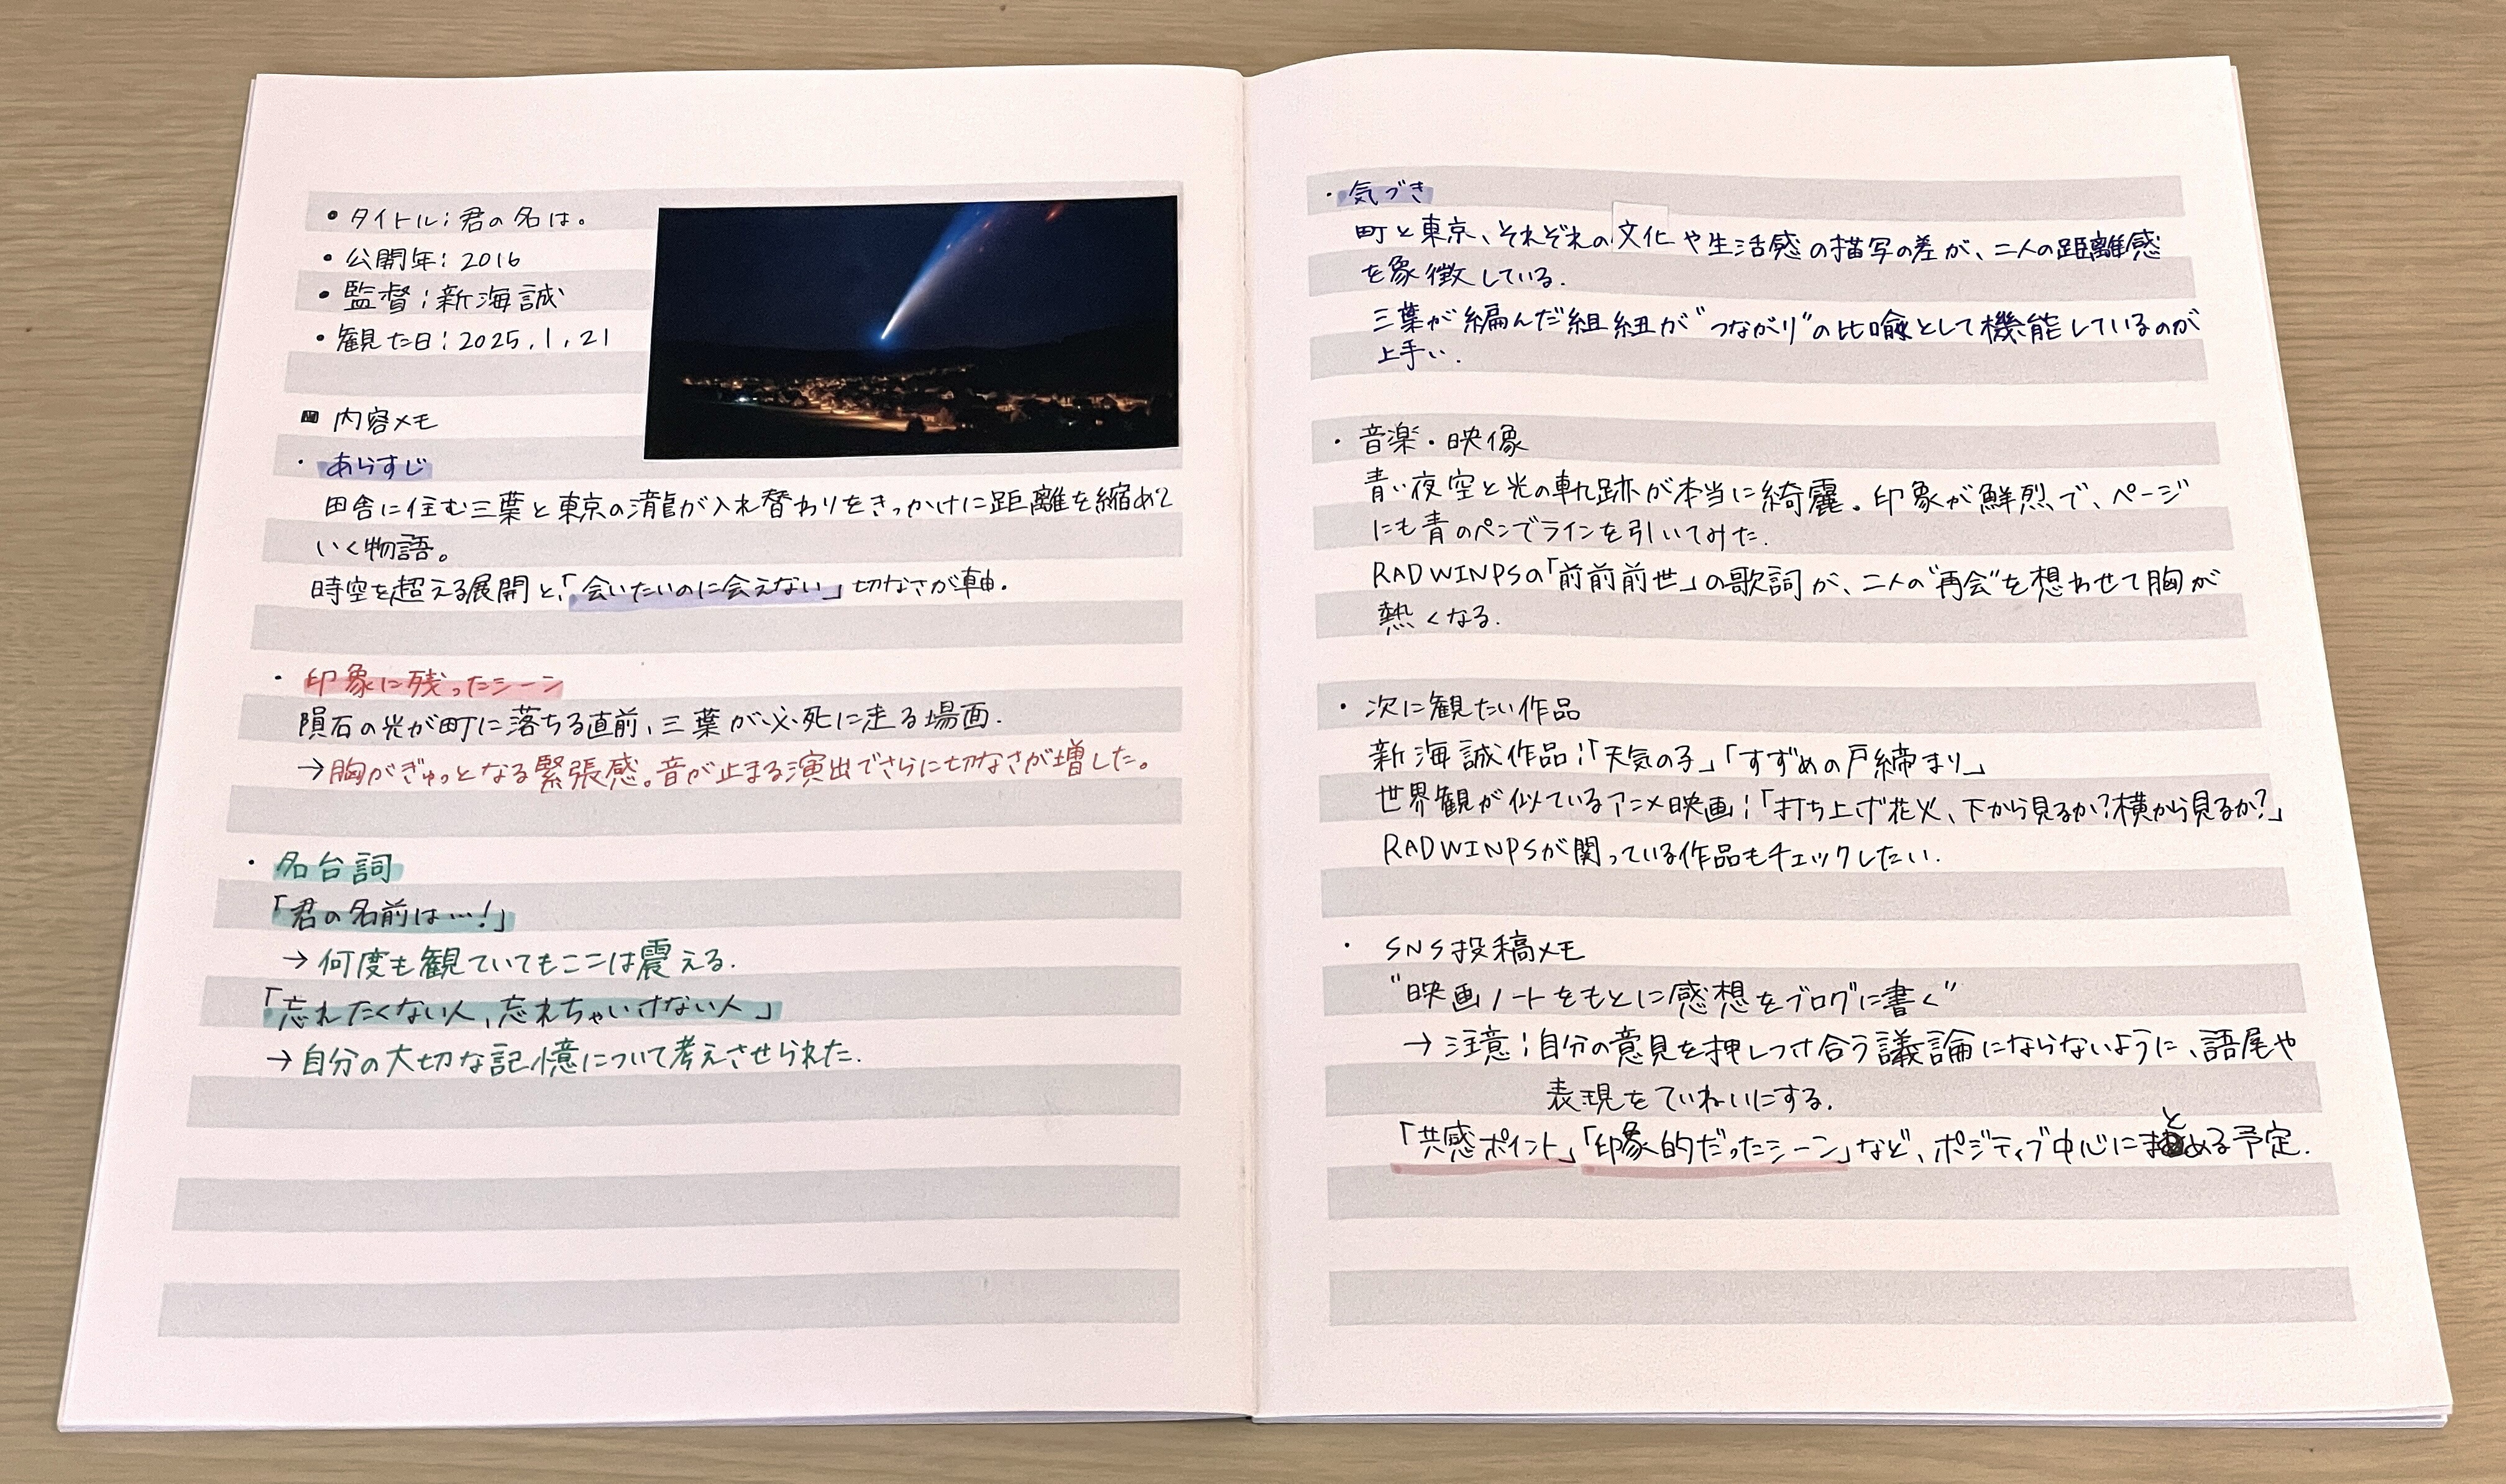 • タイトル:君の名は。
• 公開年:2016
• 監督:新海誠
• 観た日:2025.1.21
■ 内容メモ
・あらすじ
田舎に住む三葉と東京の瀧が入れ替わりをきっかけに距離を縮めて
いく物語。
時空を超える展開と、「会いたいのに会えない」切なさが軸.
・印象に残ったシーン
隕石の光が町に落ちる直前、三葉が必死に走る場面.
→胸がぎゅっとなる緊張感。音が止まる演出でさらに切なさが増した。
・名台詞
「君の名前は…!」
→何度も観ていてもここは震える.
「忘れたくない人、忘れちゃいけない人」
→自分の大切な記憶について考えさせられた.
・気づき
町と東京、それぞれの文化や生活感の描写の差が、二人の距離感
を象徴している.
三葉が編んだ組紐が“つながり”の比喩として機能しているのが
上手い.
・音楽・映像
青い夜空と光の軌跡が本当に綺麗。印象が鮮烈で、ページ
にも青のペンでラインを引いてみた.
RADWINPSの「前前前世」の歌詞が、二人の“再会”を想わせて胸が
熱くなる.
・次に観たい作品
新海誠作品:「天気の子」「すずめの戸締まり」
世界観が似ているアニメ映画:「打ち上げ花火、下から見るか?横から見るか?」
RADWINPSが関っている作品もチェックしたい.
・SNS投稿メモ
“映画ノートをもとに感想をブログに書く”
→注意:自分の意見を押しつけ合う議論にならないように、語尾や
表現をていねいにする.
「共感ポイント」「印象的だったシーン」など、ポジティブ中心にまとめる予定.